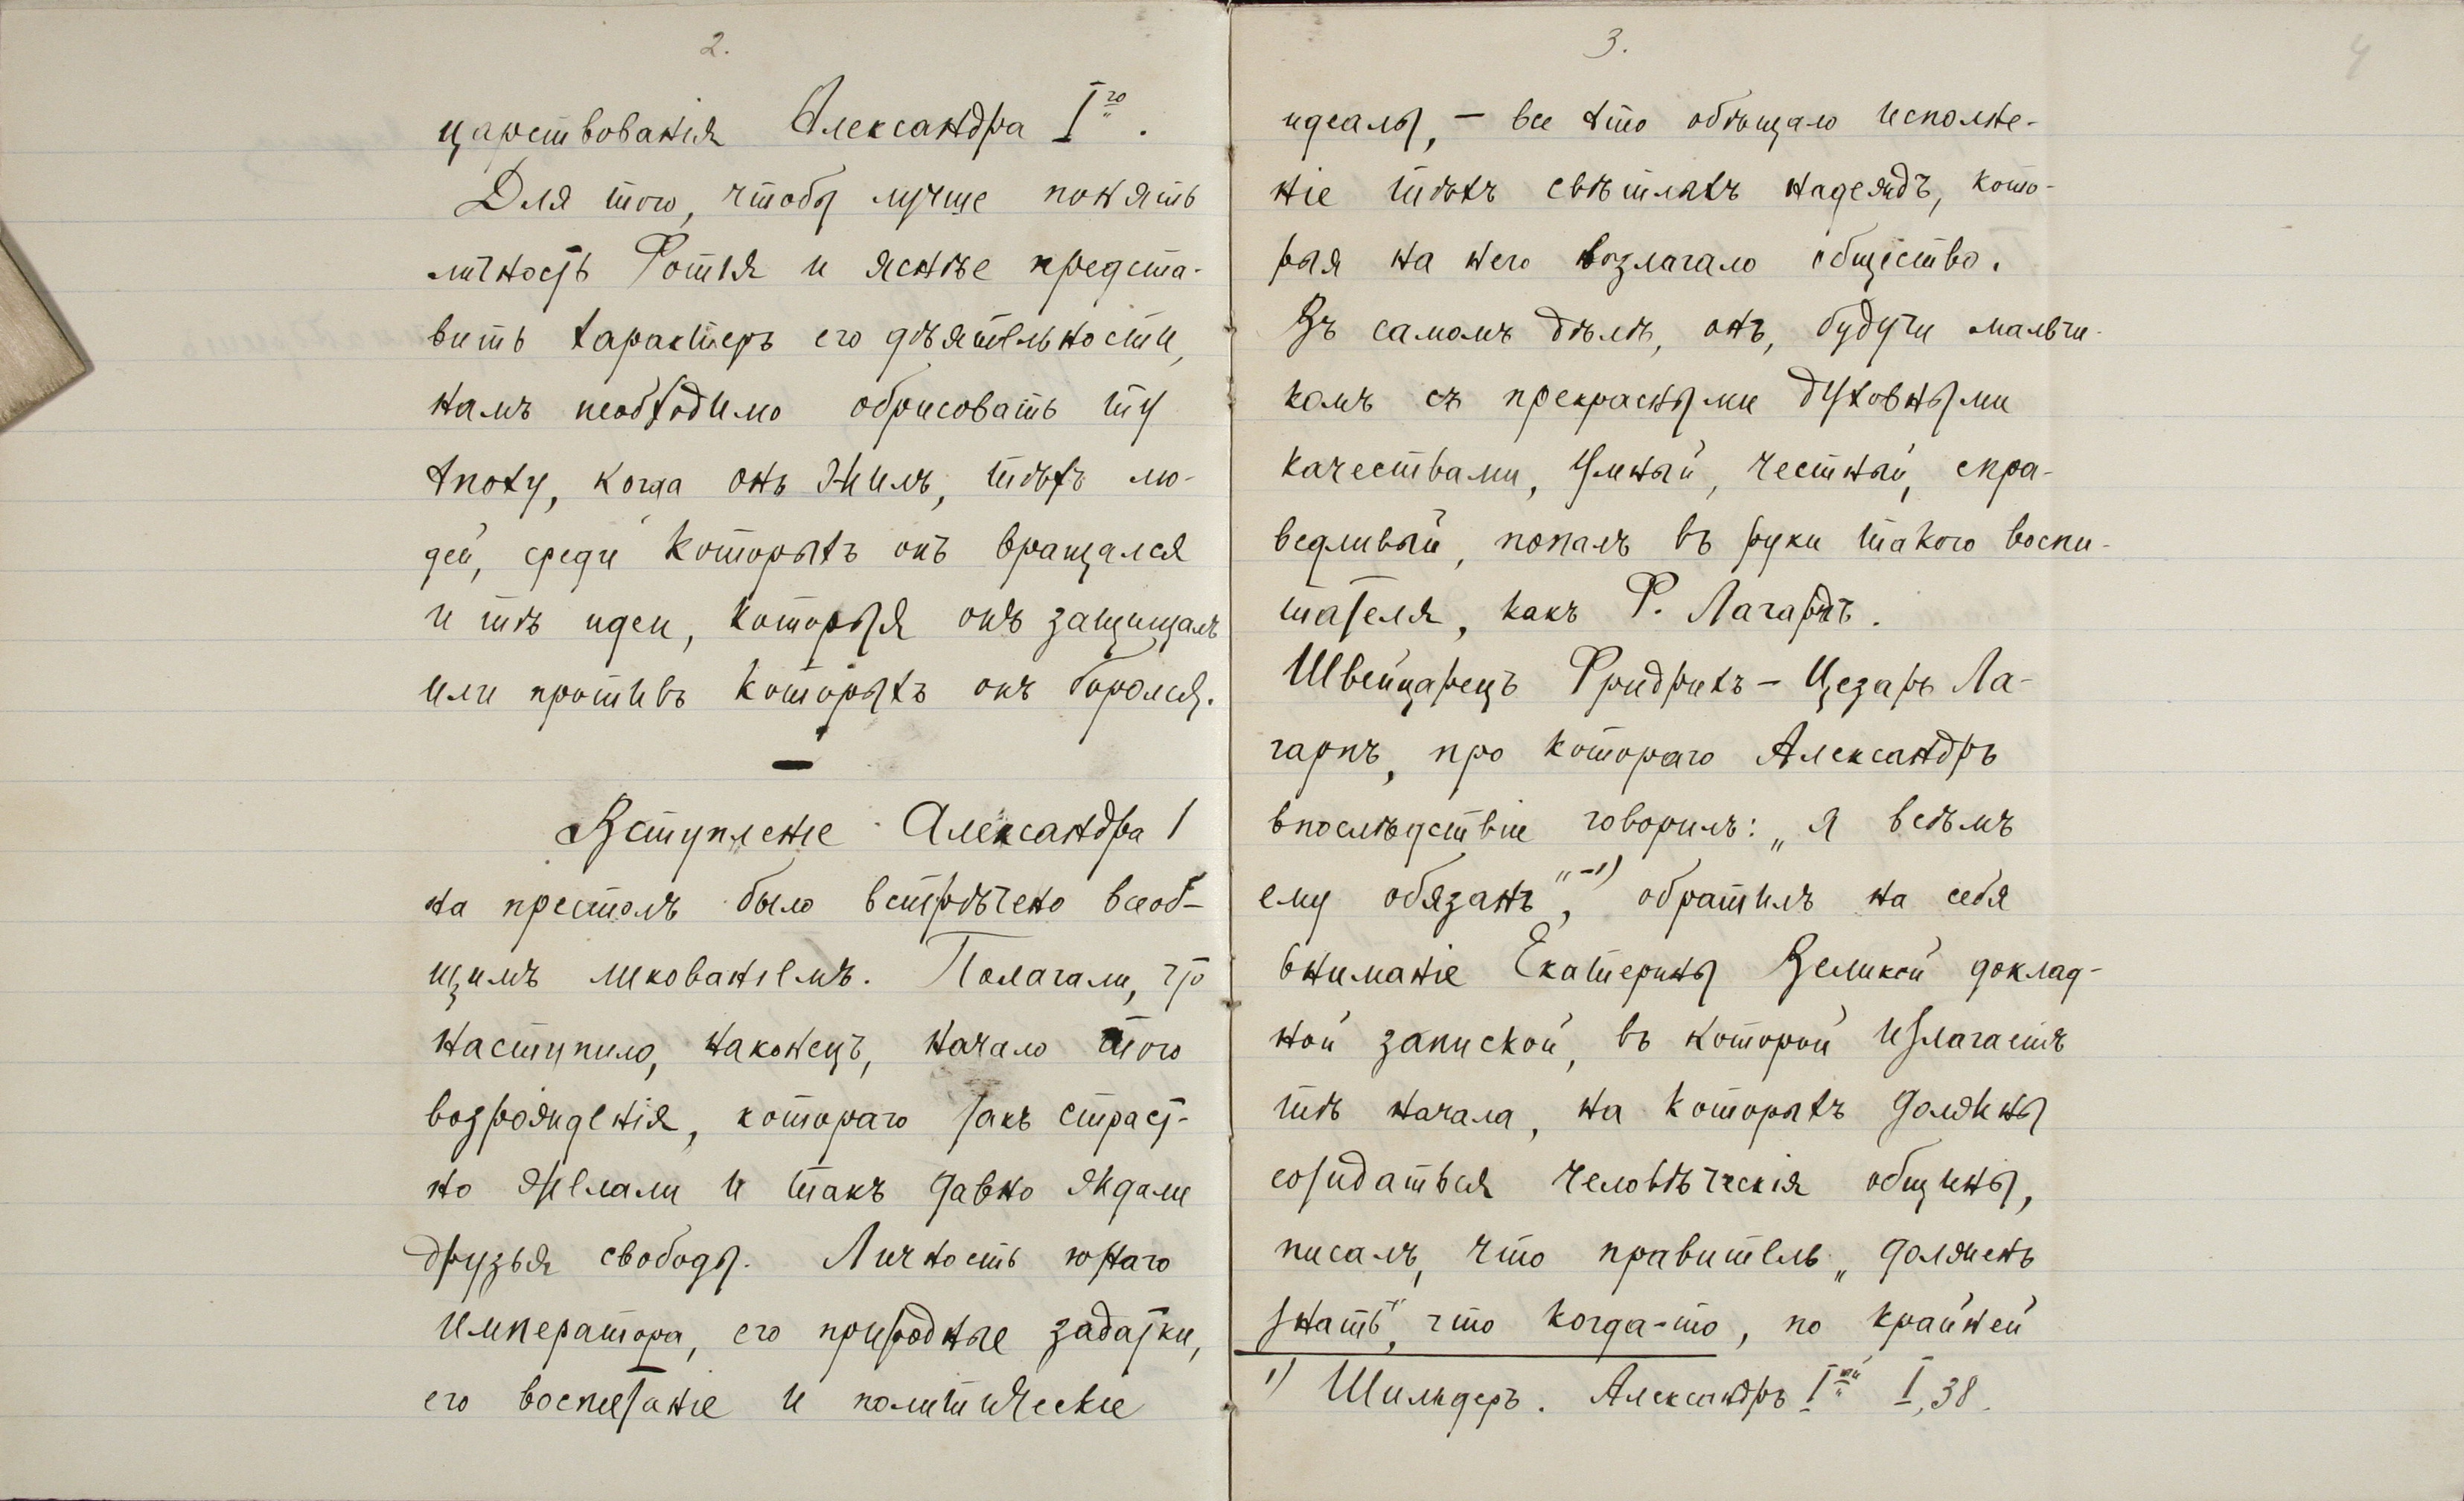 2.
царствованія Александра I го.
Для того, чтобы лучше понять
личность Фотія и яснѣе предста-
вить характеръ его дѣятельности,
намъ необходимо обрисовать ту
эпоху, когда онъ жилъ, тѣхъ лю-
дей, среди которыхъ онъ вращался
и тѣ идеи, которыя онъ защищалъ
или противъ которыхъ онъ боролся.
—
Вступленіе Александра I
на престолъ было встрѣчено всеоб-
щимъ ликованіемъ. Полагали, что
наступило, наконецъ, начало того
возрожденія, котораго такъ страст-
но желали и такъ давно ждали
друзья свободы. Личность юнаго
императора, его природные задатки,
его воспитаніе и политическіе
3.
4
идеалы, — все это обѣщало исполне-
ніе тѣхъ свѣтлыхъ надеждъ, кото-
рыя на него возлагало общество.
Въ самомъ дѣлѣ, онъ, будучи мальчи-
комъ съ прекрасными духовными
качествами, умный, честный, спра-
ведливый, попалъ въ руки такого воспи-
тателя, какъ Ф. Лагарпъ.
Швейцарецъ Фридрихъ-Цезарь Ла-
гарпъ, про котораго Александръ
впослѣдствіе говорилъ: „я всѣмъ
ему обязанъ“, 1) обратилъ на себя
вниманіе Екатерины Великой доклад-
ной запиской, въ которой излагаетъ
тѣ начала, на которыхъ должны
созидаться человѣческія общины,
писалъ, что правитель „долженъ
знать“, что когда-то, по крайней
1) Шильдеръ. Александръ I ый I, 38.